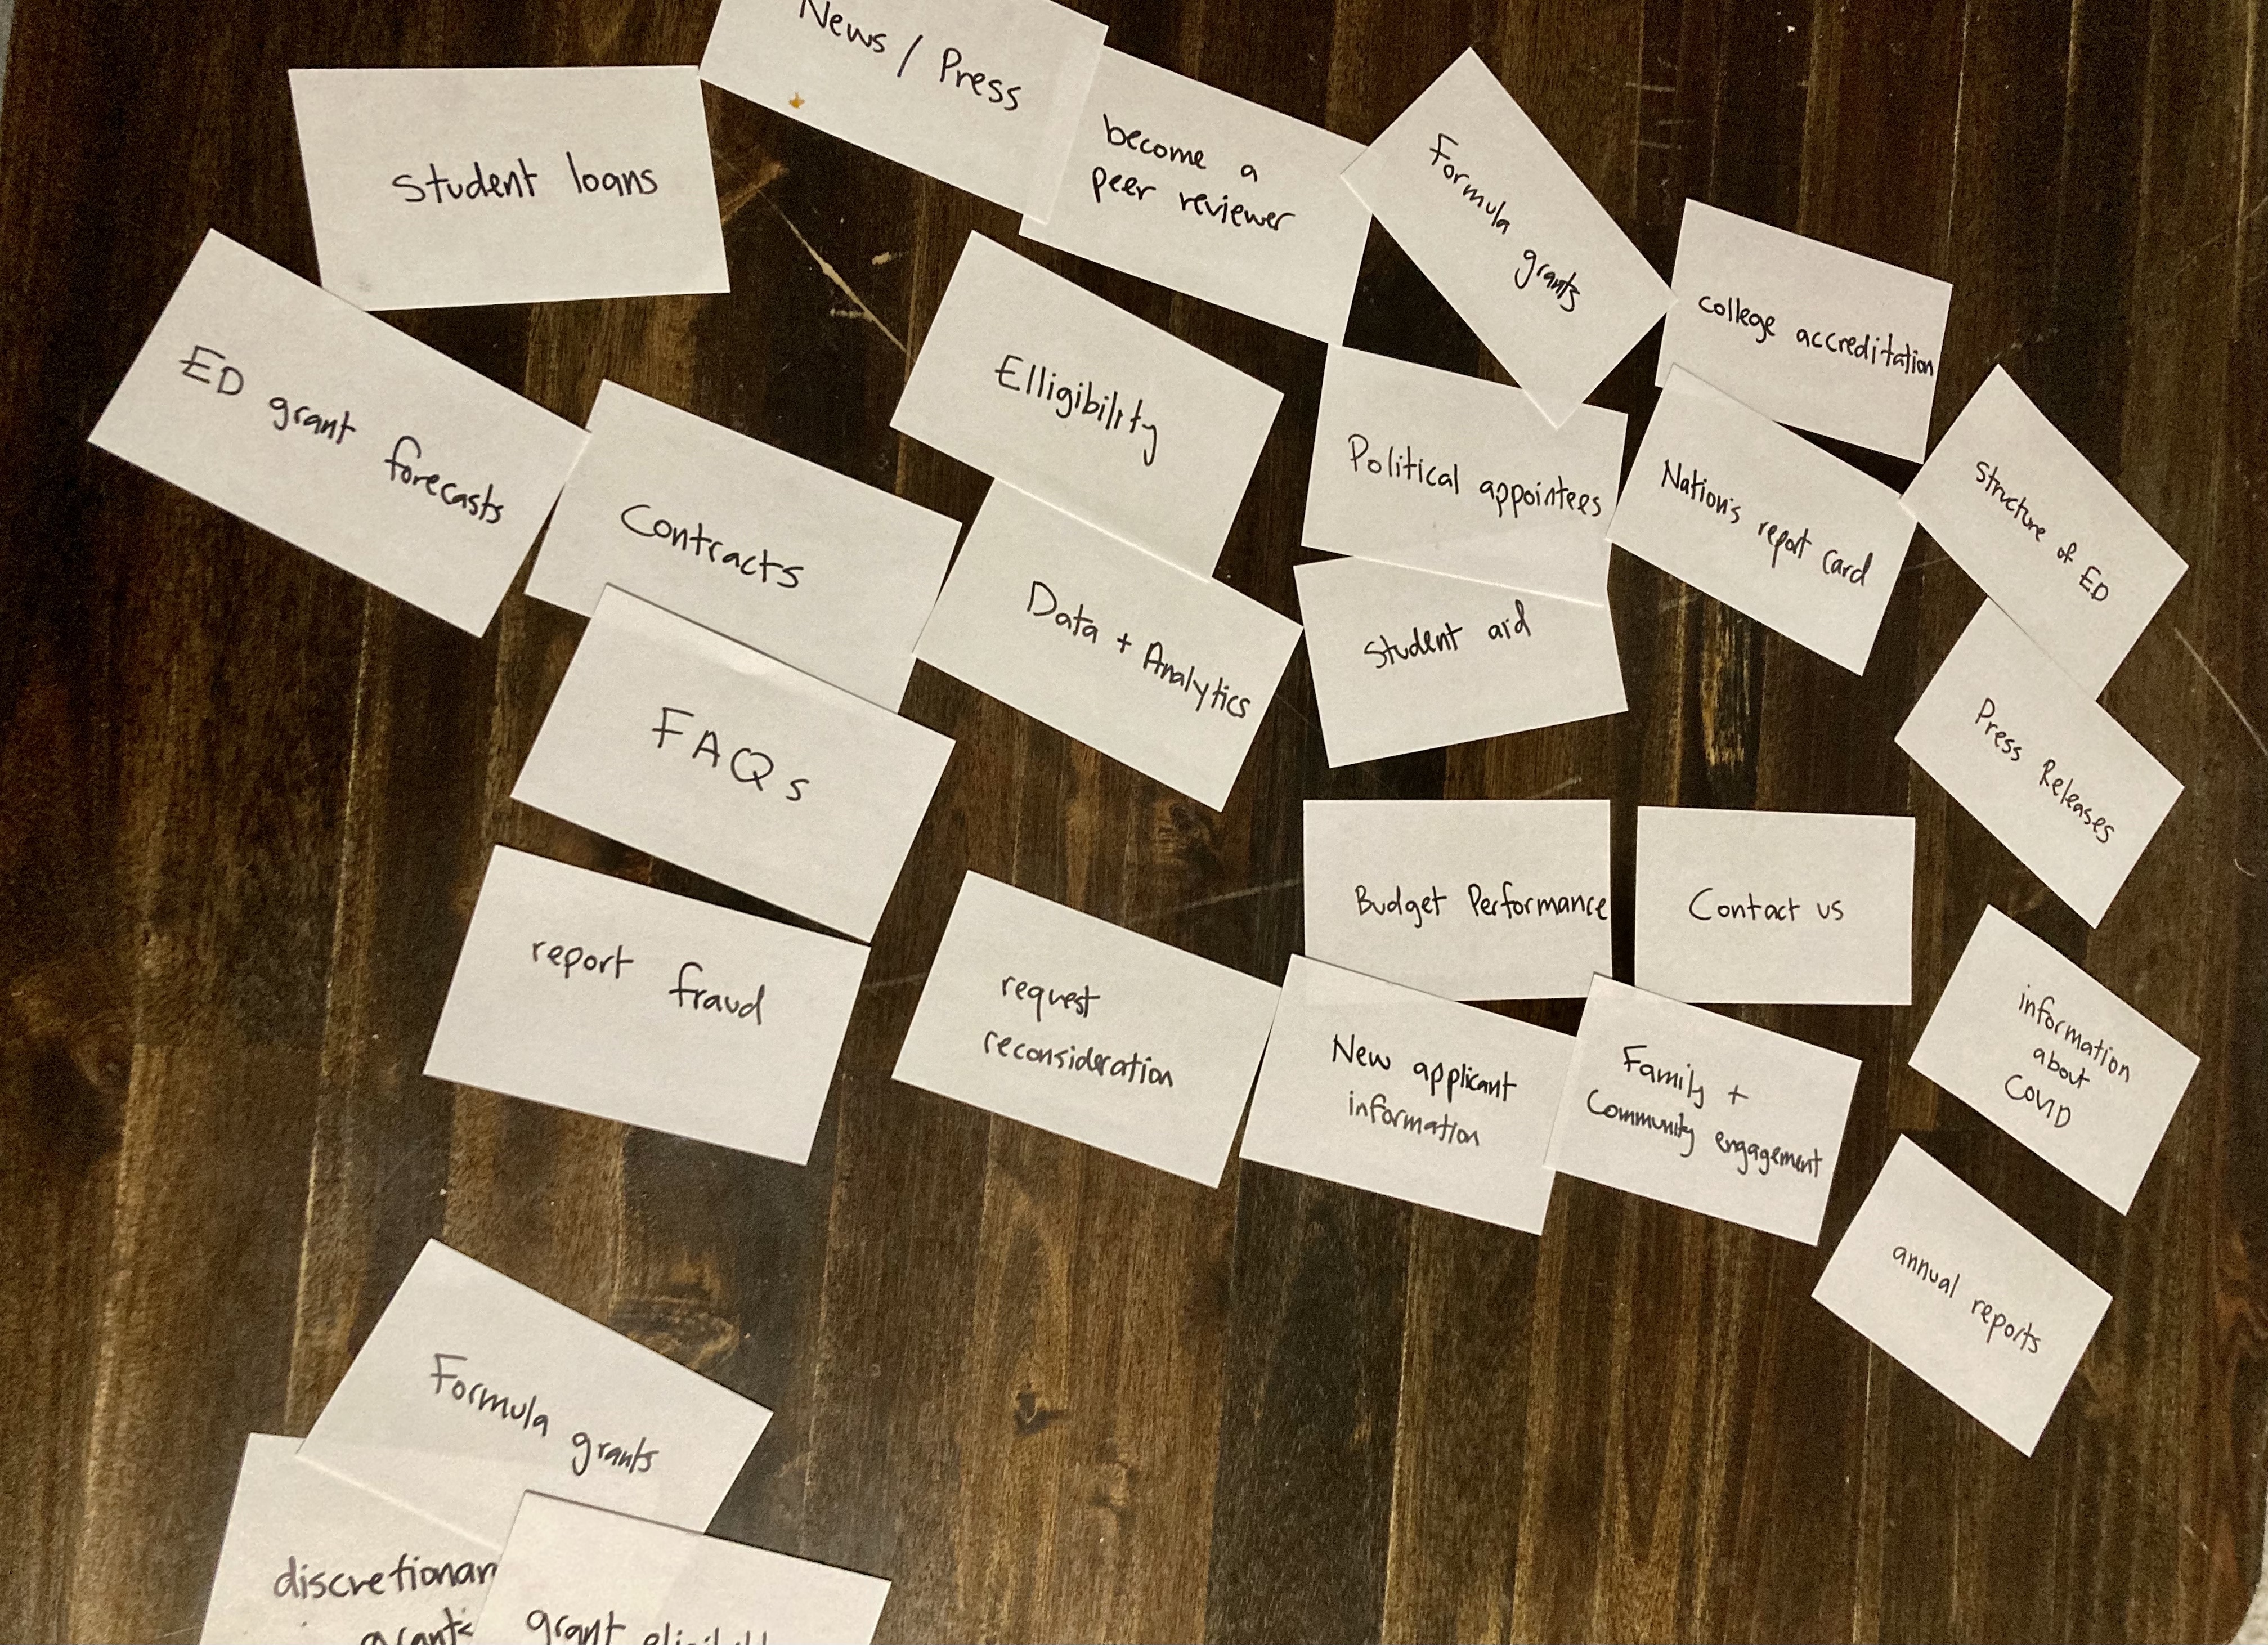 News / Press
student loans
become a
peer reviewer
Formula
grants
college accreditation
ED grant forecasts
Contracts
Elligibility
Political appointees
Nation's report card
Structure of ED
Data + Analytics
Student aid
FAQs
Press Releases
report fraud
request
reconsideration
Budget Performance
Contact us
New applicant
information
Family +
Community engagement
information
about
COVID
annual reports
Formula grants
discretionar
grants
grant